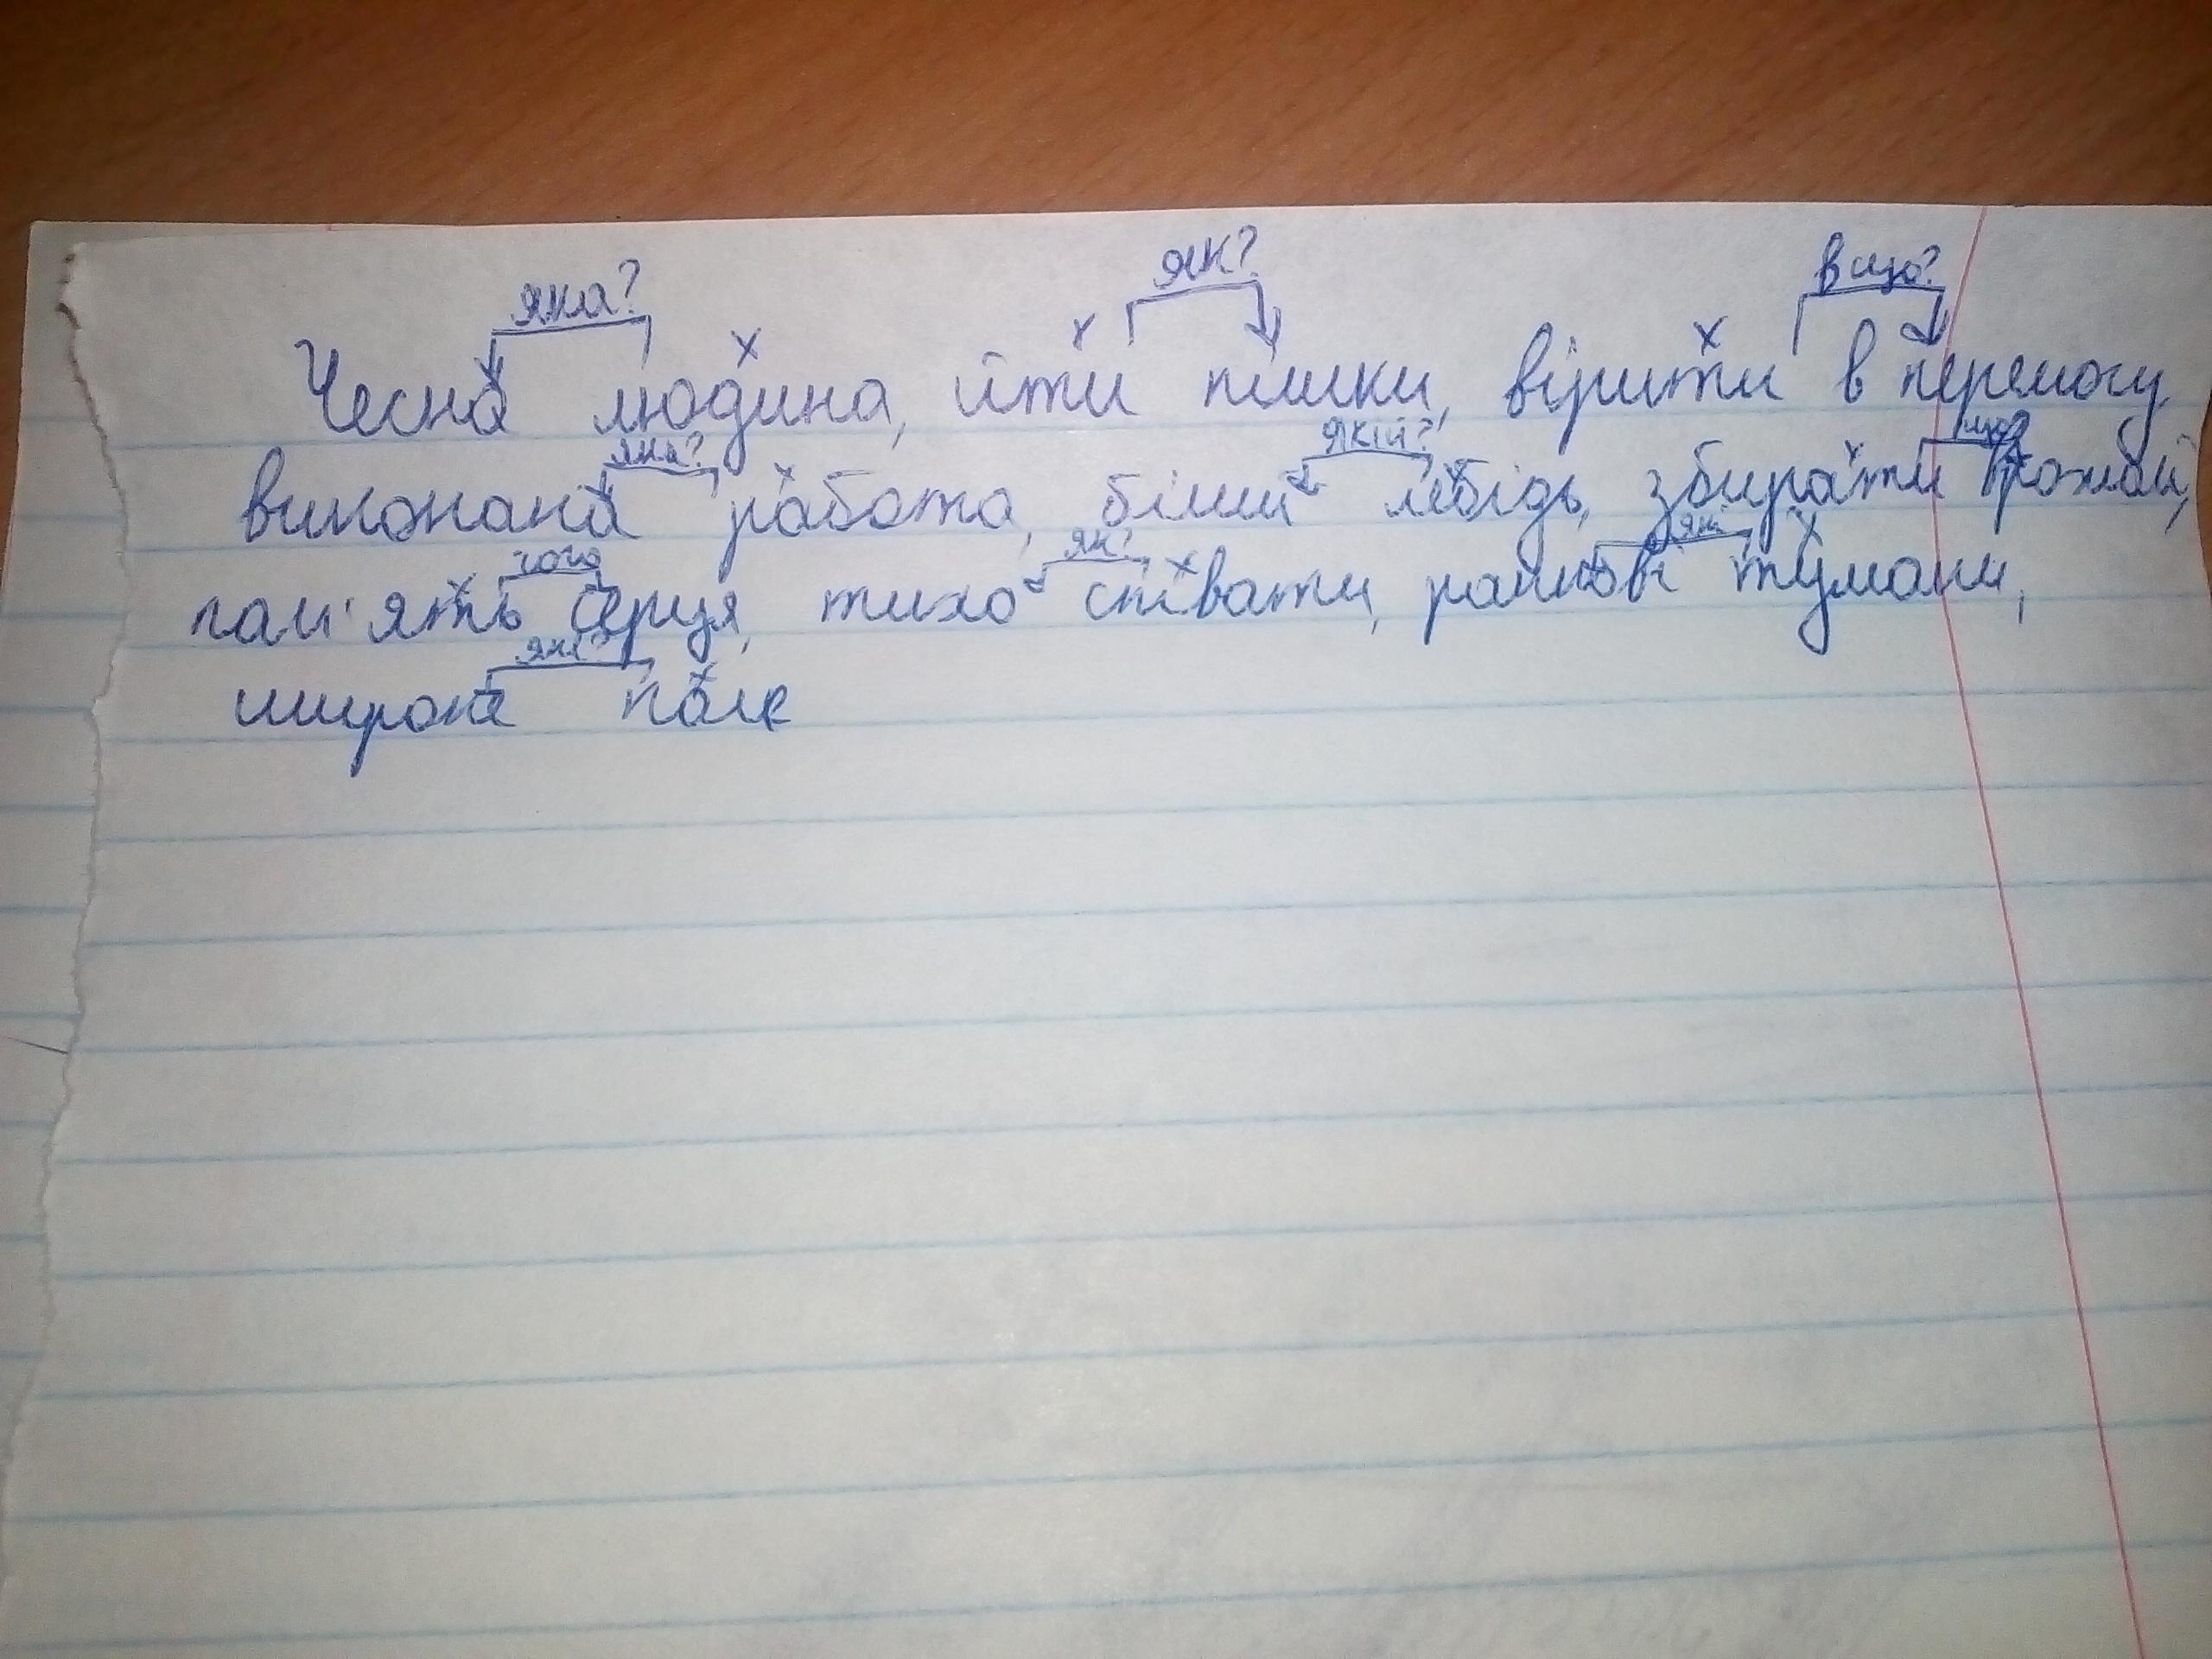 яка? як? в що?
Чесна людина, йти пішки, вірити в перемогу,
яка? якій? що?
виконана работа, білий лебідь, збирати врожай,
чого як? які
пам'ять серця, тихо співати, ранкові тумани,
яке?
широке поле